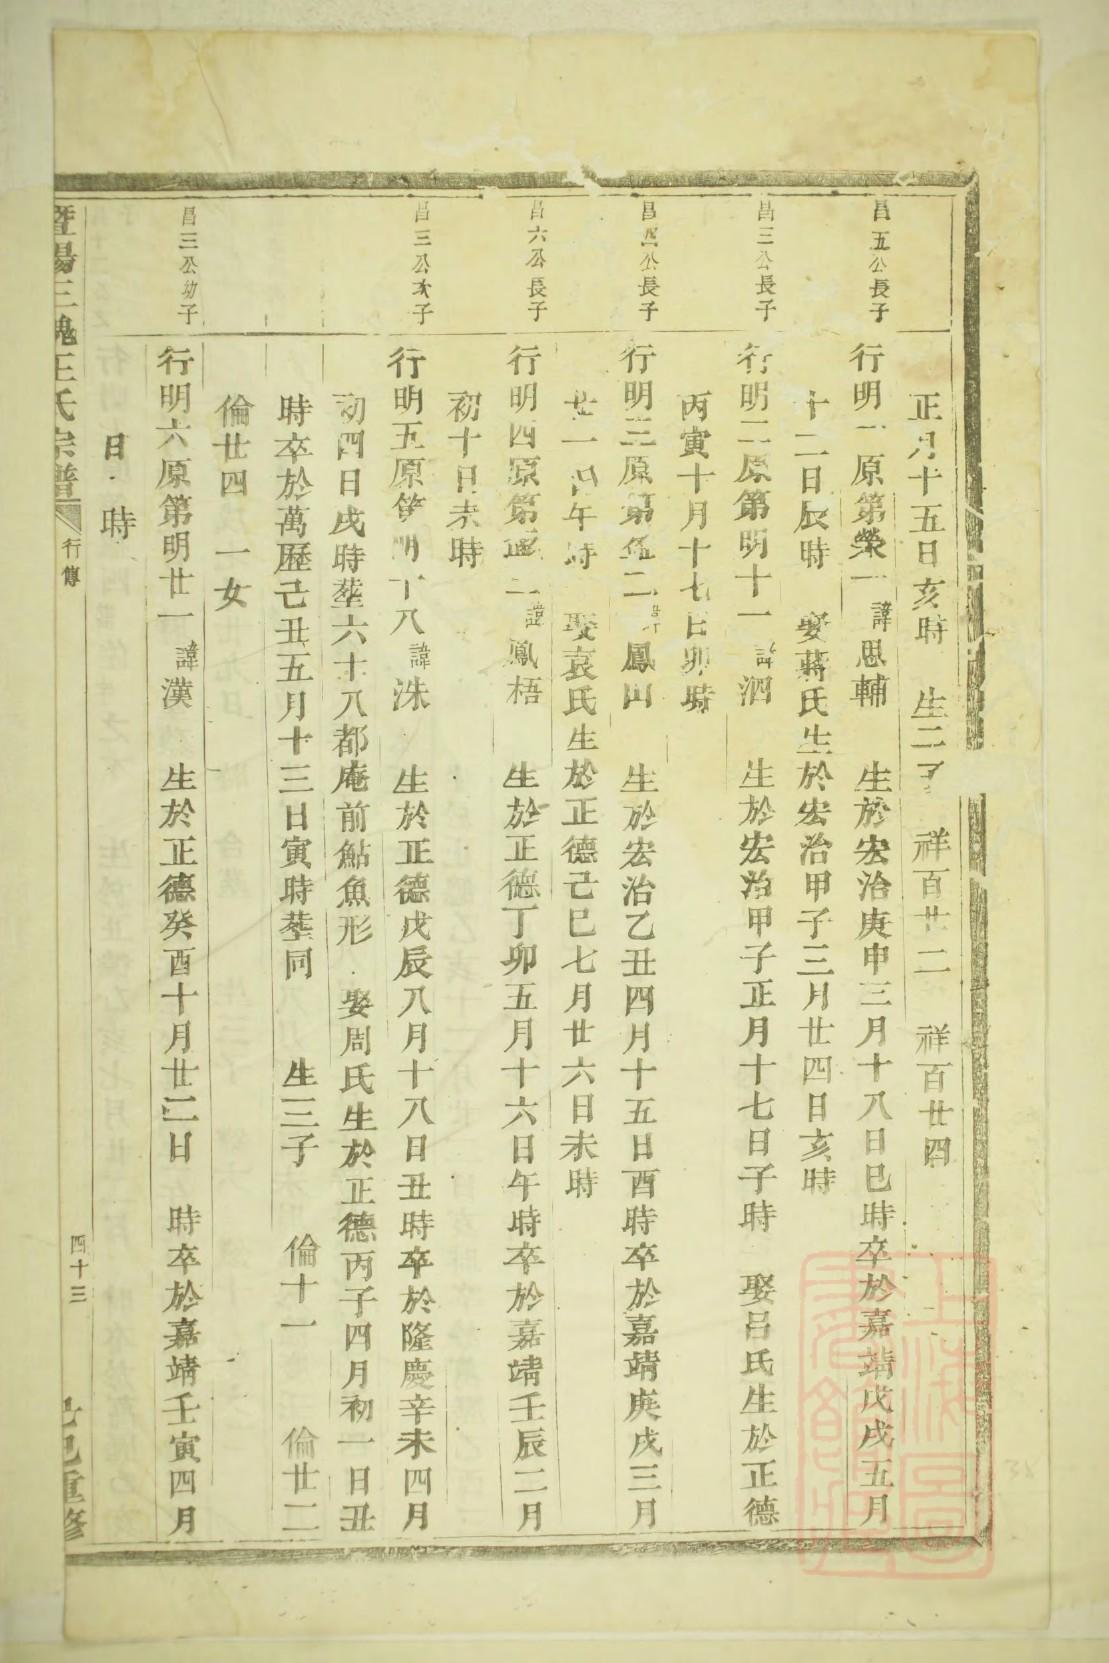 正月十五日亥時　生二子　祥百廿二　祥百廿四
昌五公長子
行明一原第榮一諱思輔　生於宏治庚申三月十八日巳時卒於嘉靖戊戌五月
十二日辰時　娶蔣氏生於宏治甲子三月廿四日亥時
昌三公長子
行明二原第明十一諱泗　生於宏治甲子正月十七日子時　娶呂氏生於正德
丙寅十月十七日卯時
昌四公長子
行明三原第伍二諱鳳田　生於宏治乙丑四月十五日酉時卒於嘉靖庚戌三月
廿一日午時　娶袁氏生於正德己巳七月廿六日未時
昌六公長子
行明四原第二諱鳳梧　生於正德丁卯五月十六日午時卒於嘉靖壬辰二月
初十日未時
昌三公次子
行明五原第明十八諱洙　生於正德戊辰八月十八日丑時卒於隆慶辛未四月
初四日戌時塟六十八都庵前鮎魚形　娶周氏生於正德丙子四月初一日丑
時卒於萬歷己丑五月十三日寅時塟同　生三子　倫十一　倫廿二
倫廿四　一女
昌三公幼子
行明六原第明廿一諱漢　生於正德癸酉十月廿二日　時卒於嘉靖壬寅四月
日　時
暨陽三槐王氏宗譜　行傳　四十三　己巳重修
上海圖書館藏